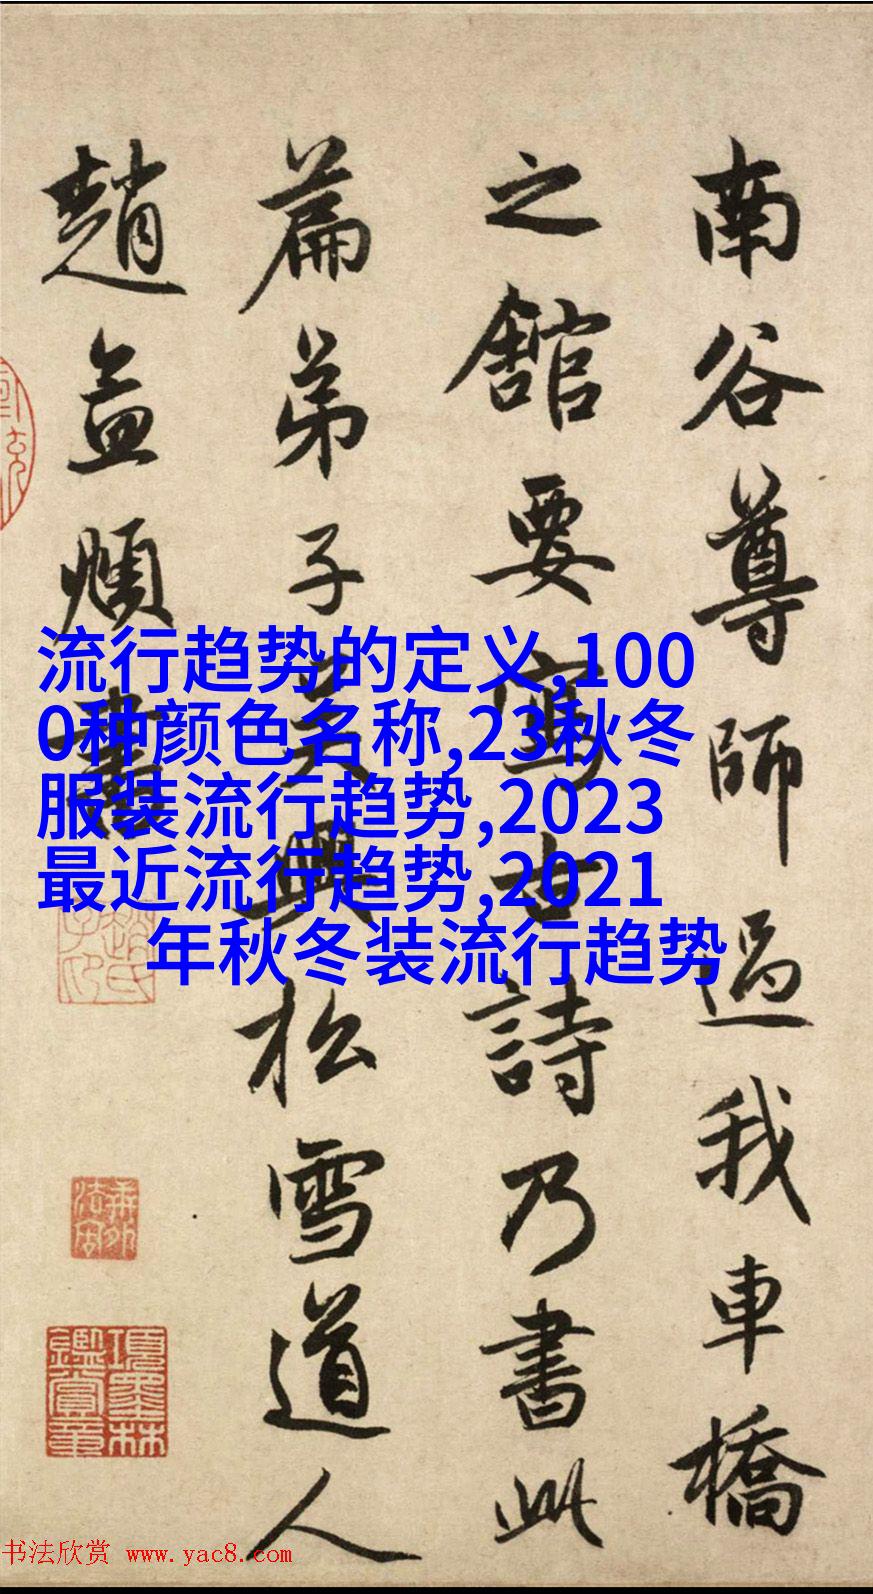 南谷尊師過我車橋
之舘要寫古詩乃書此
篇弟子吳興松雪道人
趙孟頫書
流行趋势的定义,100
0种颜色名称,23秋冬
服装流行趋势,2023
最近流行趋势,2021
年秋冬装流行趋势
項墨林
鑑賞章
书法欣赏 www.yac8.com